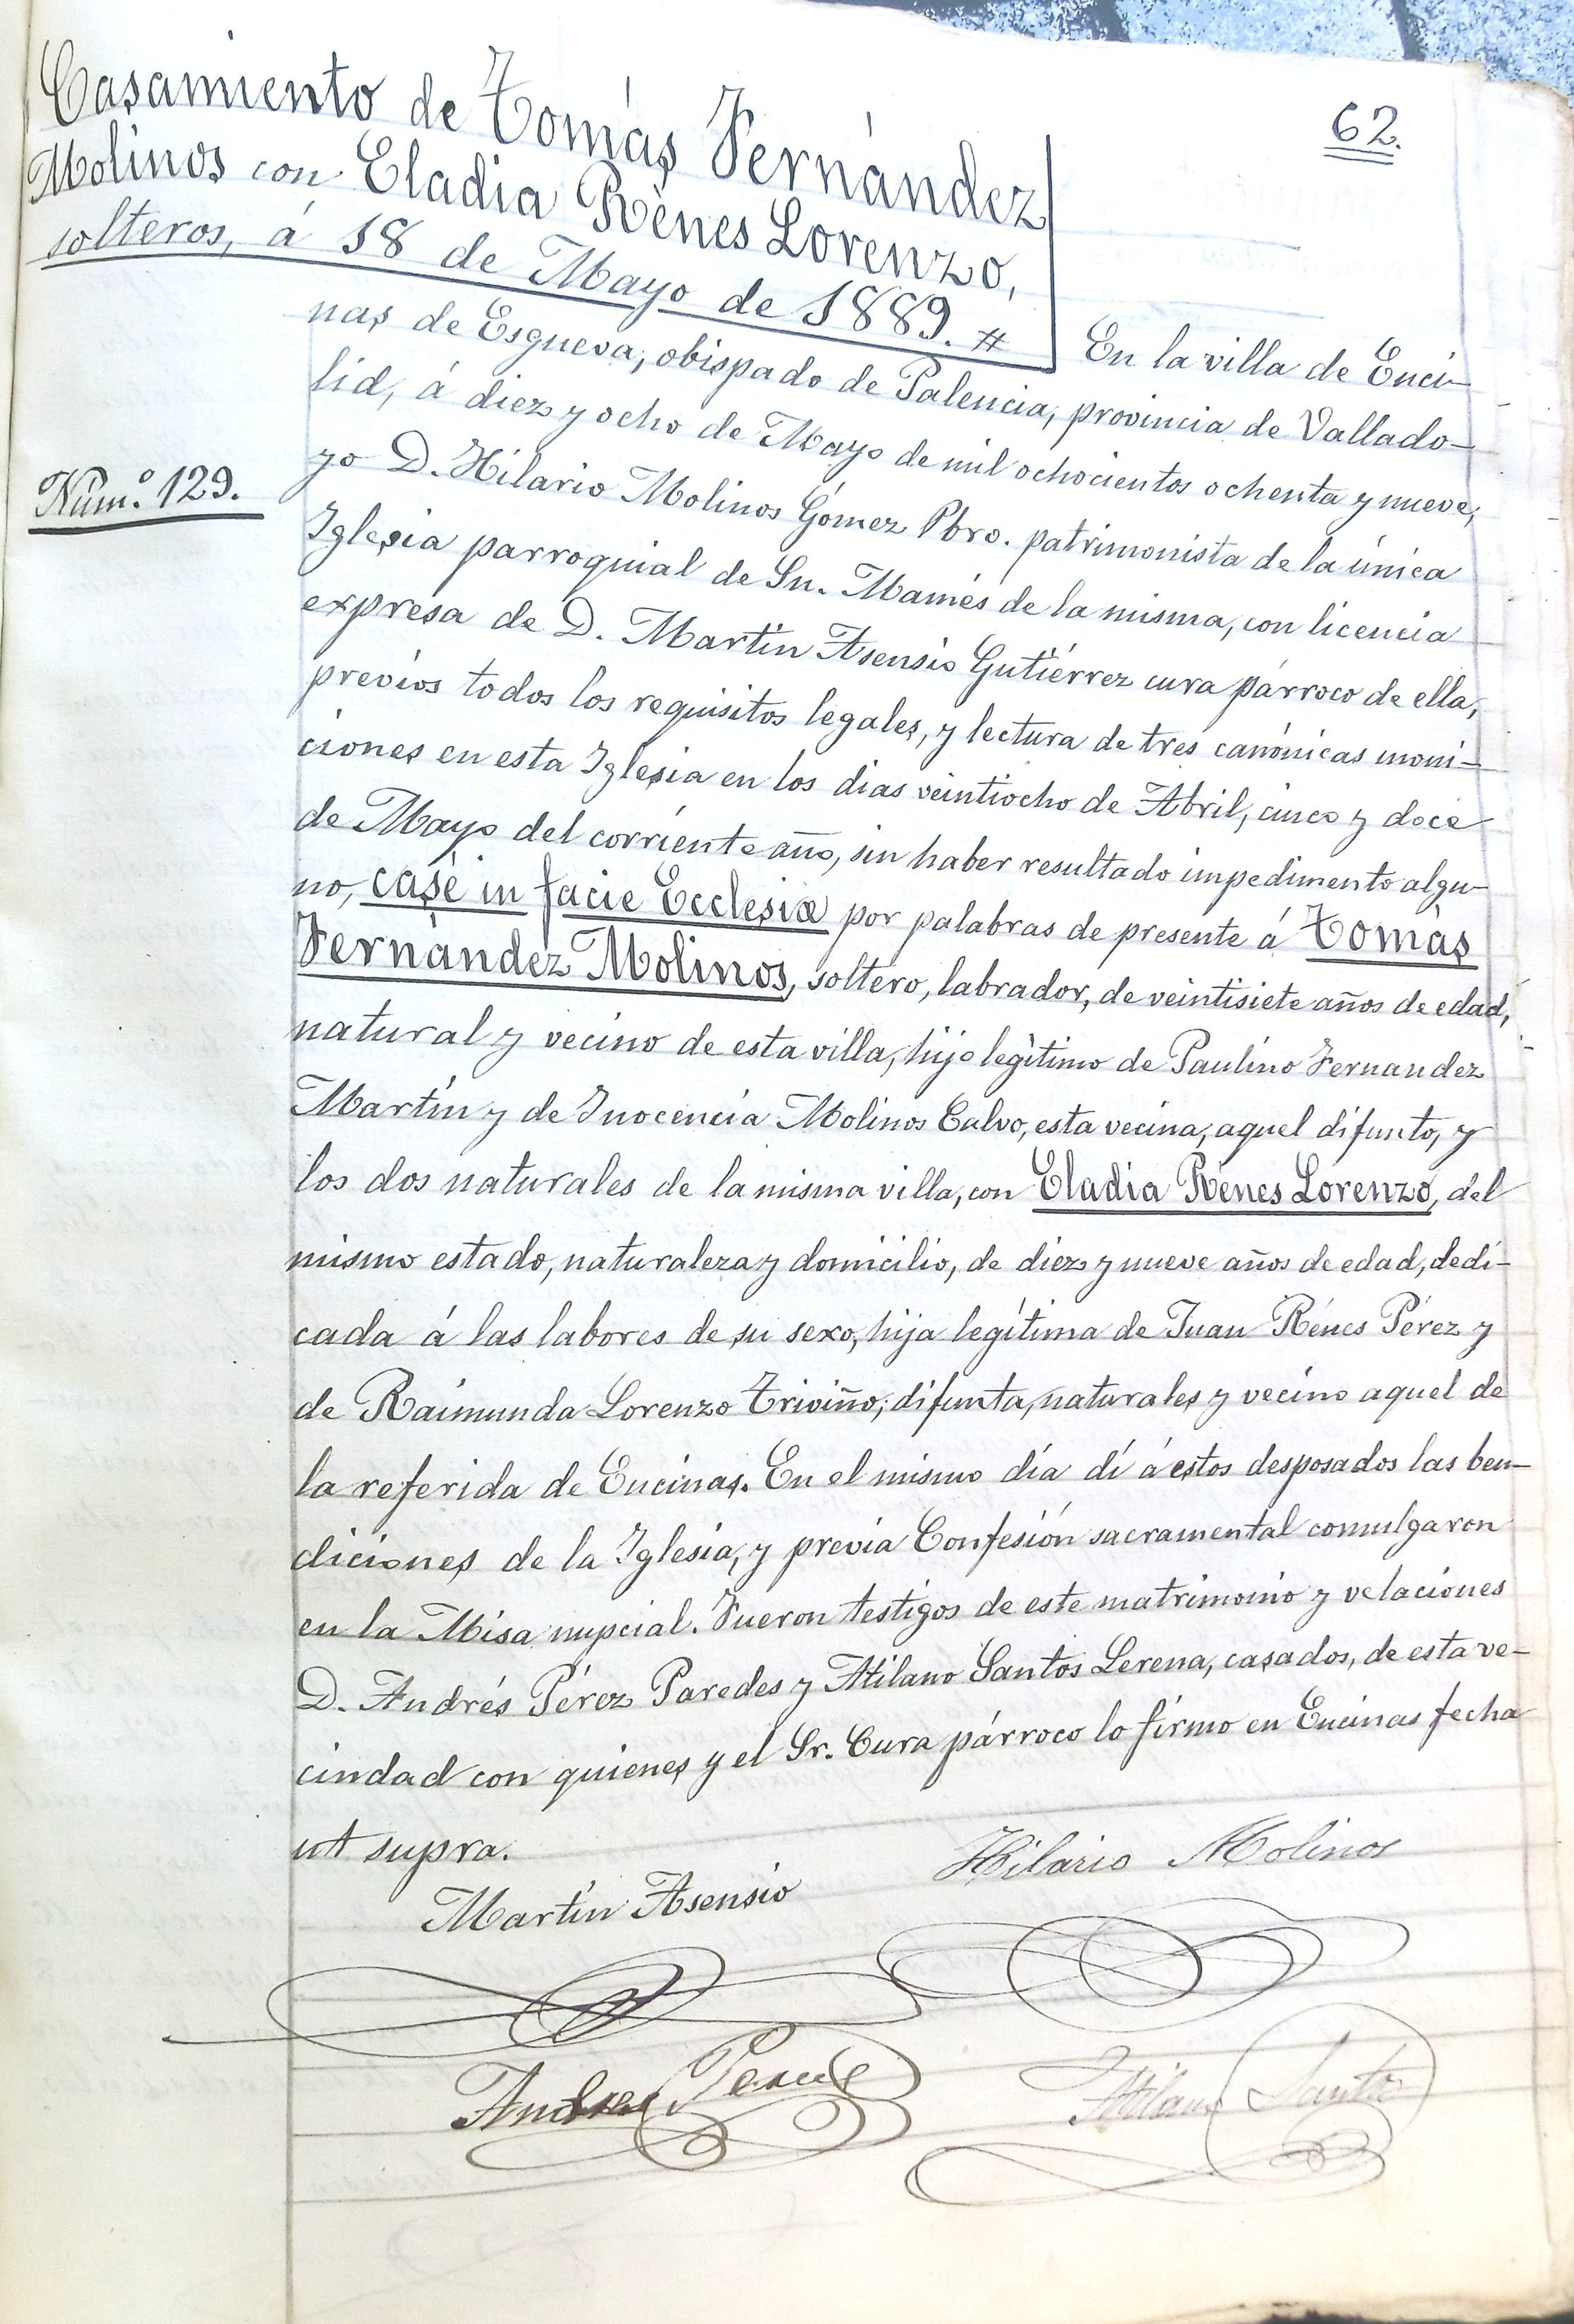 62.
Casamiento de Tomás Fernández
Molinos con Eladia Rénes Lorenzo,
solteros, á 18 de Mayo de 1889. #
En la villa de Enci-
nas de Esgueva, obispado de Palencia, provincia de Vallado-
lid, á diez y ocho de Mayo de mil ochocientos ochenta y nueve,
Núm.º 129.
yo D. Hilario Molinos Gómez Pbro. patrimonista de la única
Iglesia parroquial de Sn. Mamés de la misma, con licencia
expresa de D. Martín Asensio Gutiérrez cura párroco de ella,
prévios todos los requisitos legales, y lectura de tres canónicas moni-
ciones en esta Iglesia en los dias veintiocho de Abril, cinco y doce
de Mayo del corriente año, sin haber resultado impedimento algu-
no, casé in facie Ecclesiæ por palabras de presente á Tomás
Fernández Molinos, soltero, labrador, de veintisiete años de edad,
natural y vecino de esta villa, hijo legítimo de Paulino Fernandez
Martín y de Inocencia Molinos Calvo, esta vecina, aquel difunto, y
los dos naturales de la misma villa, con Eladia Rénes Lorenzo, del
mismo estado, naturaleza y domicilio, de diez y nueve años de edad, dedi-
cada á las labores de su sexo, hija legítima de Juan Rénes Pérez y
de Raimunda Lorenzo Triviño, difunta, naturales y vecino aquel de
la referida de Encinas. En el mismo día dí á estos desposados las ben-
diciones de la Iglesia, y previa Confesión sacramental comulgaron
en la Misa nupcial. Fueron testigos de este matrimonio y velaciones
D. Andrés Pérez Paredes y Atilano Santos Lerena, casados, de esta ve-
cindad con quienes y el Sr. Cura párroco lo firmo en Encinas fecha
ut supra.
Hilario Molinos
Martín Asensio
Andres Perez
Atilano Santos